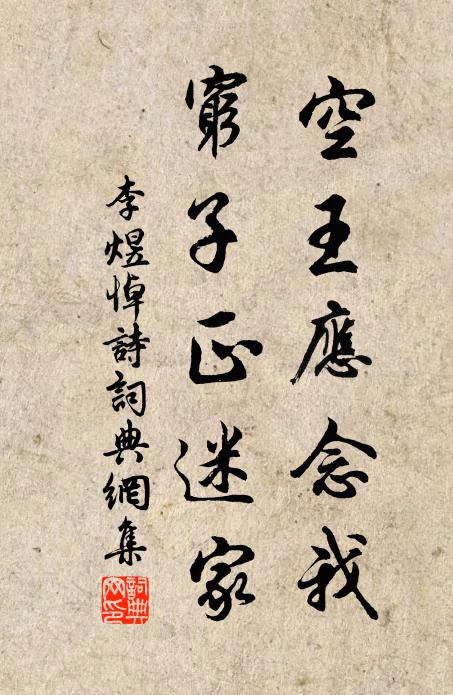 空王應念我
窮子正迷家
李煜悼詩詞典網集
詞典
网印